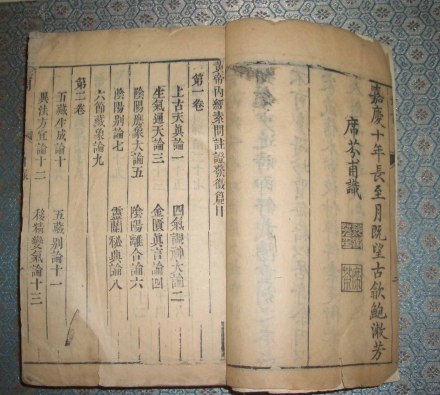 嘉慶十年長至月既望古歙鮑漱芳
席芬甫識
黃帝內經素問註證發微篇目
第一卷
上古天真論一　四氣調神大論二
生氣通天論三　金匱真言論四
陰陽應象大論五　陰陽離合論六
陰陽別論七　靈蘭秘典論八
六節藏象論九
第二卷
五藏生成論十　五藏別論十一
異法方宜論十二　移精變氣論十三